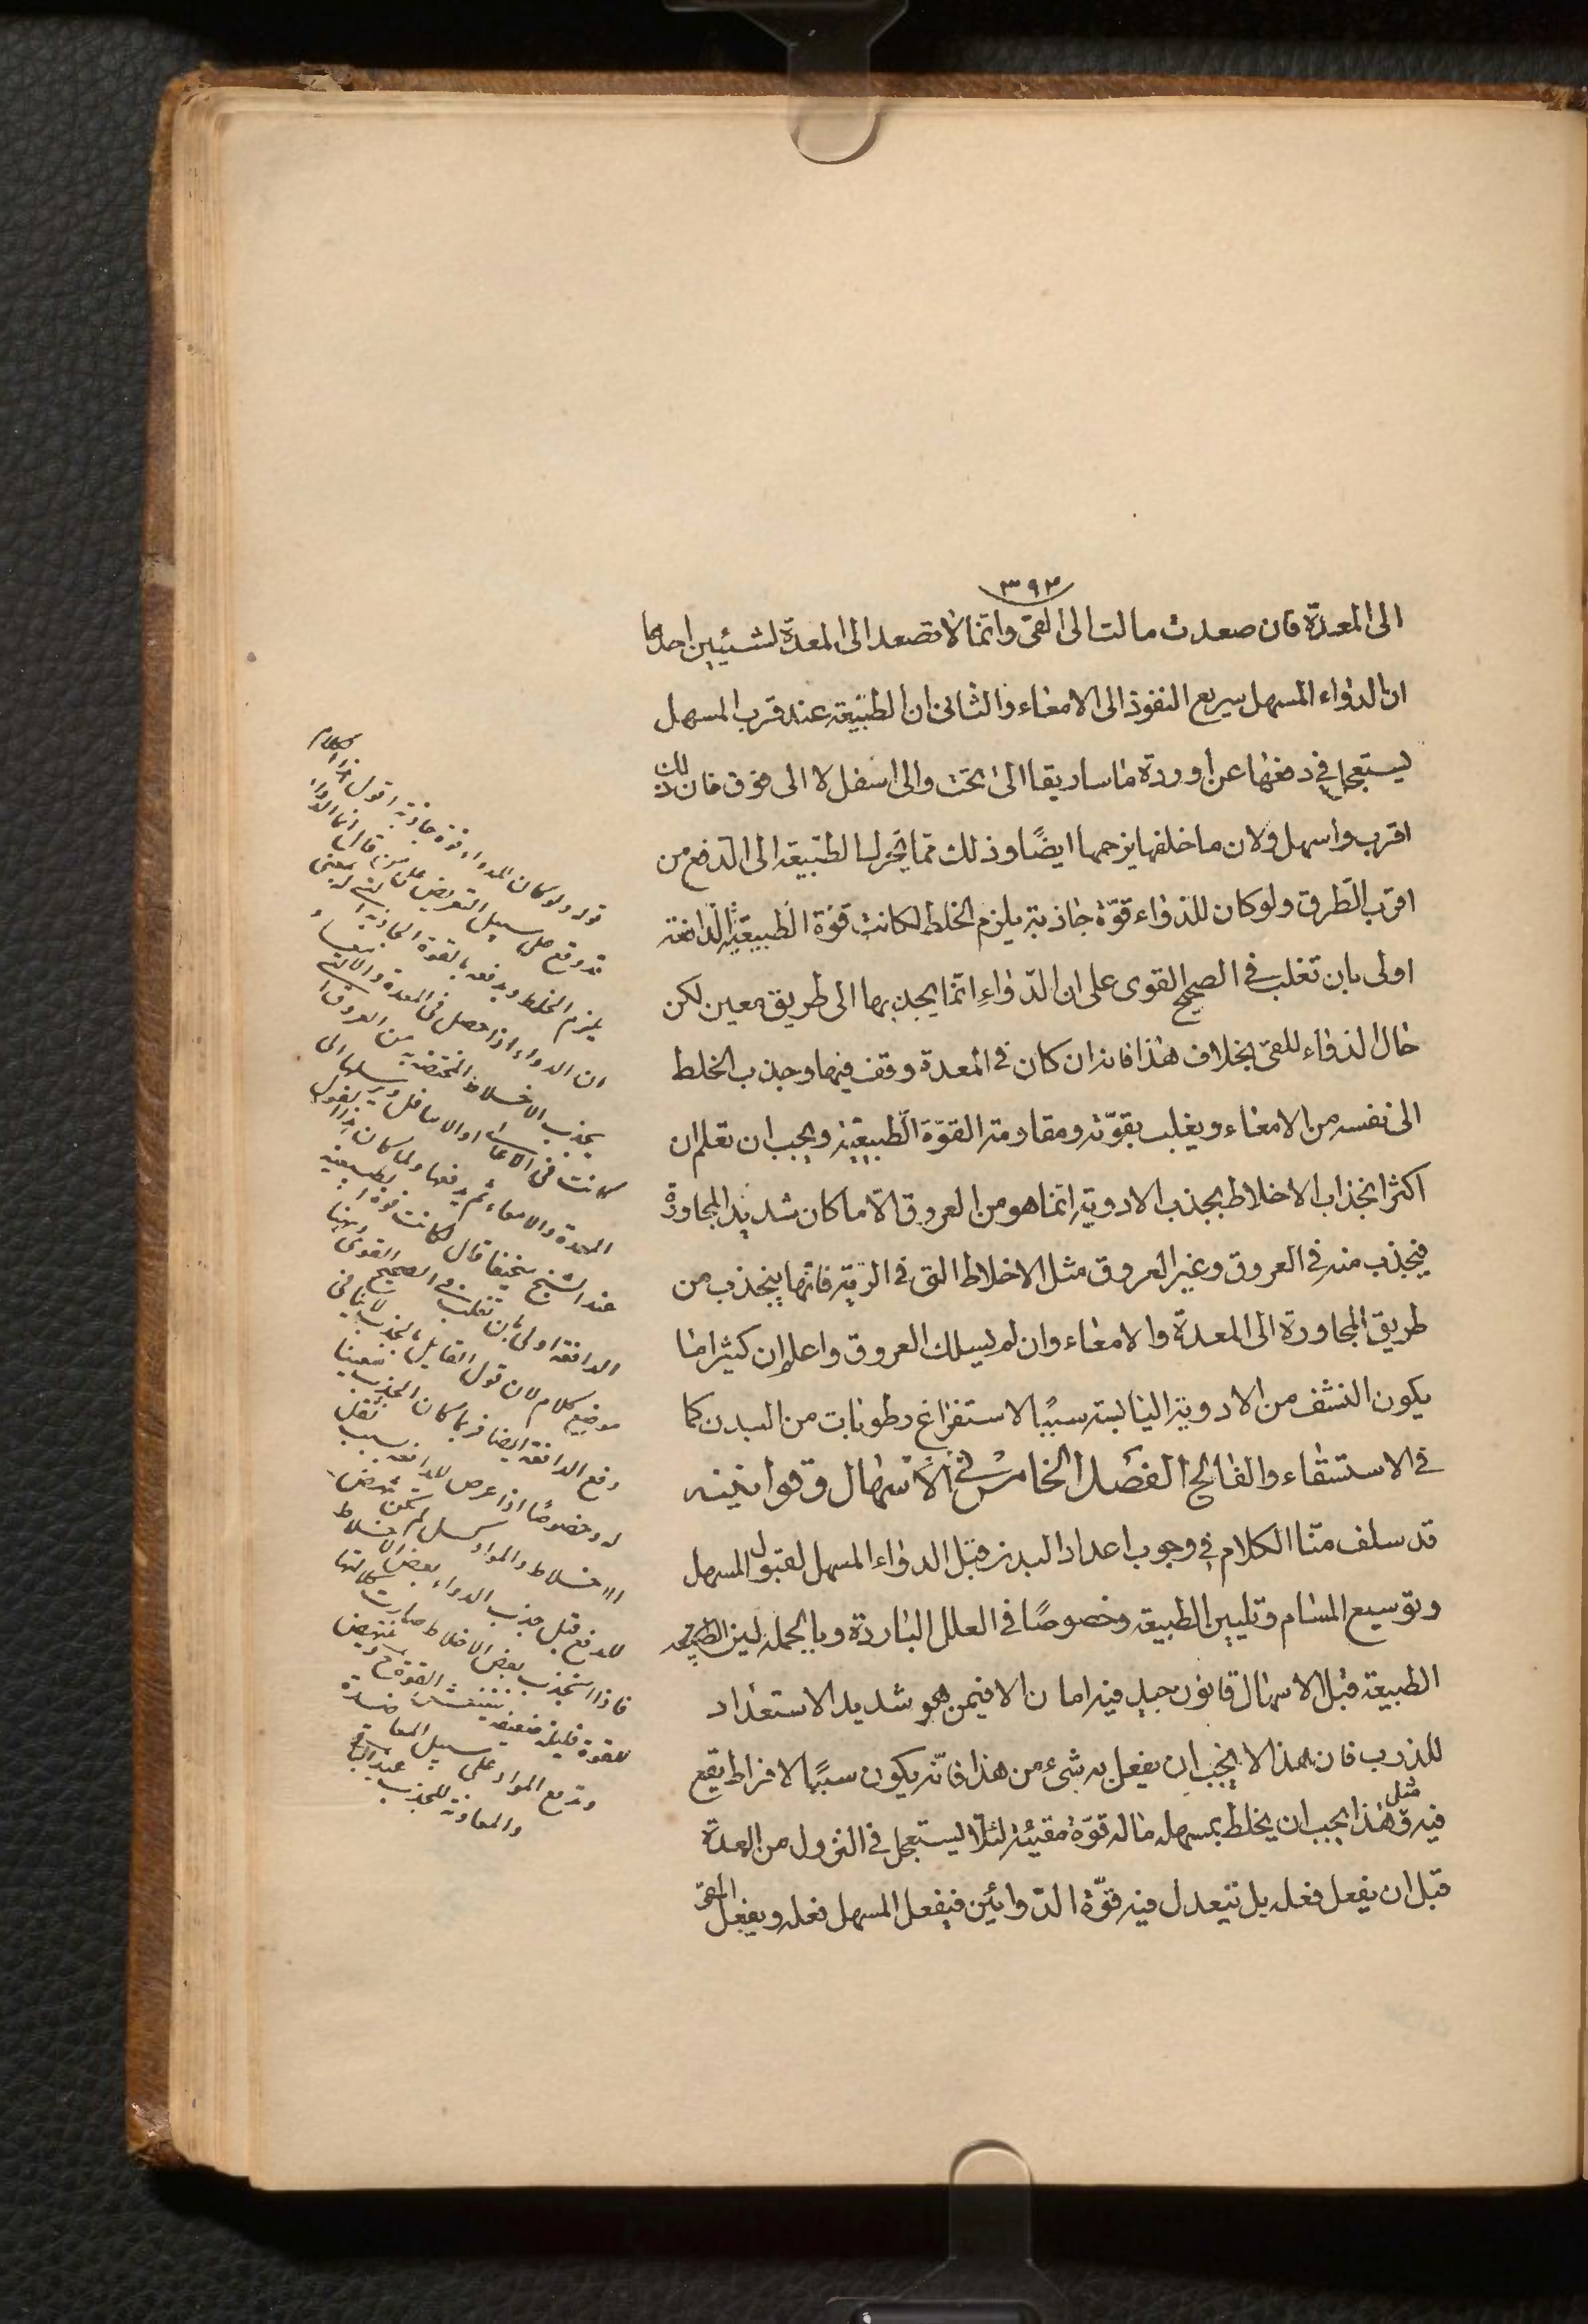 ٣٩٣
الى المعدة فان صعدت مالت الى القئ وانما لا تصعد الى المعدة لشيئين احدهما
ان الدواء المسهل سريع النفوذ الى الامعاء والثانى ان الطبيعة عند قرب المسهل
يستعجل فى دفعها عن اوردة ماساريقا الى تحت والى اسفل لا الى فوق فان ذلك
اقرب واسهل ولان ما خلفها يزحمها ايضًا وذلك مما يحرك الطبيعة الى الدفع من
اقرب الطرق ولو كان للدواء قوّة جاذبة يلزم الخلط لكانت قوّة الطبيعة الدافعة
اولى بان تغلب فى الصحيح القوى على ان الدّواء انما يجذبها الى طريق معين لكن
حال الدواء للقئ بخلاف هذا فانه ان كان فى المعدة وقف فيها وجذب الخلط
الى نفسه من الامعاء ويغلب بقوّته ومقاومته القوّة الطبيعية ويجب ان تعلم ان
اكثر انجذاب الاخلاط بجذب الادوية انما هو من العروق الّا ما كان شديد المجاورة
فيجذب منه فى العروق وغير العروق مثل الاخلاط التى فى الرية فانها ينجذب من
طريق المجاورة الى المعدة والامعاء وان لم يسلك العروق واعلم ان كثيرا ما
يكون النشف من الادوية اليابسة سببًا لاستفراغ رطوبات من البدن كما
فى الاستسقاء والفالج الفصل الخامس فى الاسهال وقوانينه
قد سلف منّا الكلام فى وجوب اعداد البدن قبل الدواء المسهل لقبول المسهل
وتوسيع المسام وتليين الطبيعة وخصوصًا فى العلل الباردة وبالجملة لين الطبيعة
الطبيعة قبل الاسهال قانون جيد فيه امان الا فيمن هو شديد الاستعداد
للذرب فان هذا لا يجب ان يفعل به شىء من هذا فانّه يكون سببًا لافراط يقع
فيه ومثل هذا يجب ان يخلط بمسهله ما له قوّة مقيئة لئلا يستعجل فى النزول من المعدة
قبل ان يفعل فعله بل تتعدل فيه قوّة الدّوائين فيفعل المسهل فعله ويفعل المقئ
قوله ولو كان للدواء قوة جاذبة اقول هذا الكلام
قد وقع على سبيل التعريض على من قال انما الدواء
يلزم الخلط ويدفعه بالقوة الجاذبة التى له بمعنى
ان الدواء اذا حصل فى المعدة والامعاء
يجذب الاخلاط المختصة به من العروق
كانت فى الاعالى او الاسافل ويرسلها الى
المعدة والامعاء ثم يدفعها ولما كان هذا القول
عند الشيخ سخيفا قال لكانت قوة الطبيعية
الدافعة اولى بان تغلب فى الصحيح القوى وههنا
موضع كلام لان قول القايل بالجذب لا ينافى
دفع الدافعة ايضا فربما كان الجذب معينا
له وخصوصًا اذا عرض للدافعة بسبب ثقل
الاخلاط والمواد كسل لم تتمكن تنهض
للدفع قبل جذب الدواء بعض الاخلاط
فاذا انجذب بعض الاخلاط صارت
للقوة قليلة ضعيفة تنتعش القوة وتنهض
وتدفع المواد على سبيل
والمعاونة للجذب